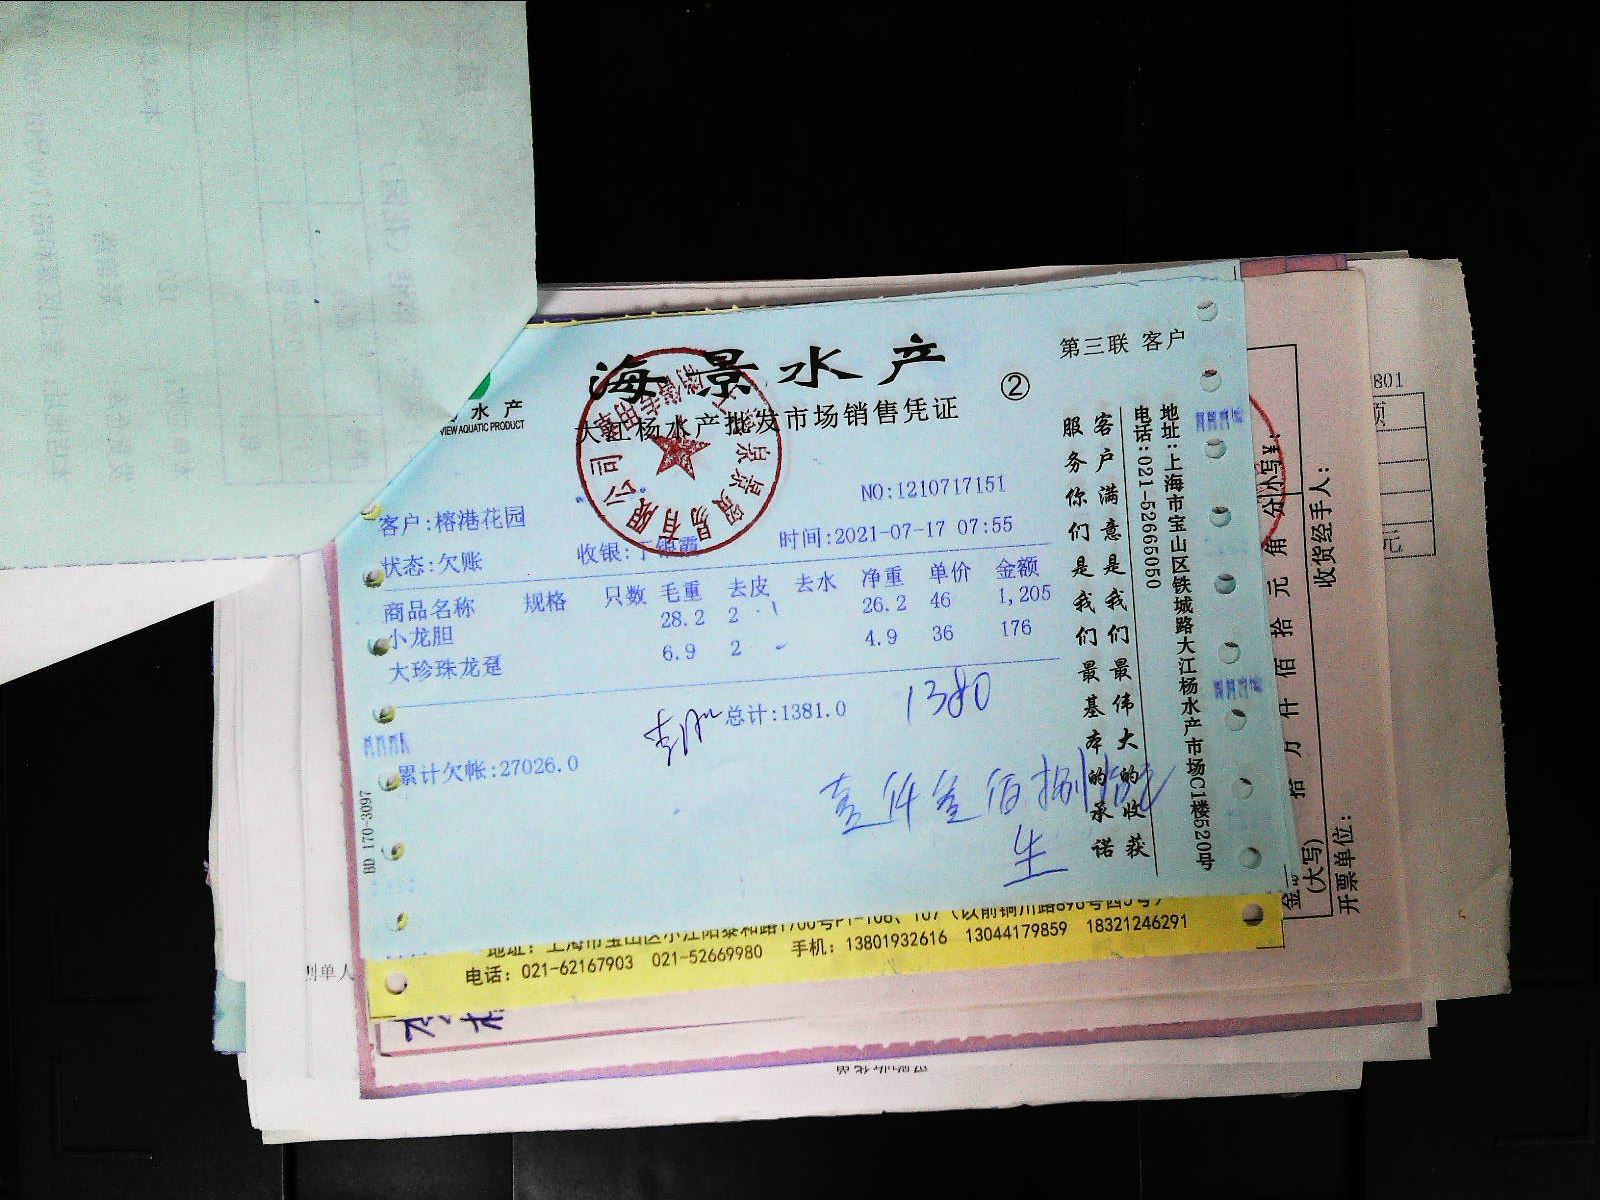 海景水产
②
第三联 客户
水产
VIEW AQUATIC PRODUCT
大江杨水产批发市场销售凭证
NO:1210717151
客户:榕港花园
状态:欠账
收银:丁银霞
时间:2021-07-17 07:55
商品名称 规格 只数 毛重 去皮 去水 净重 单价 金额
小龙胆 28.2 2 26.2 46 1,205
大珍珠龙趸 6.9 2 4.9 36 176
总计:1381.0
1380
累计欠帐:27026.0
壹仟叁佰捌拾元
生
BD 170-3097
客户满意是我们最伟大的收获
服务你们是我们最基本的承诺
地址:上海市宝山区铁城路大江杨水产市场C1楼520号
电话:021-52665050
有限公司
地址:上海市宝山区小江阳泰和路1700号P1-106、107（以前铜川路896号四5号）
电话: 021-62167903 021-52669980 手机: 13801932616 13044179859 18321246291
拾 万 仟 佰 拾 元 角 分
小写¥:
(大写)
收货经手人:
开票单位:
801
元
制单人